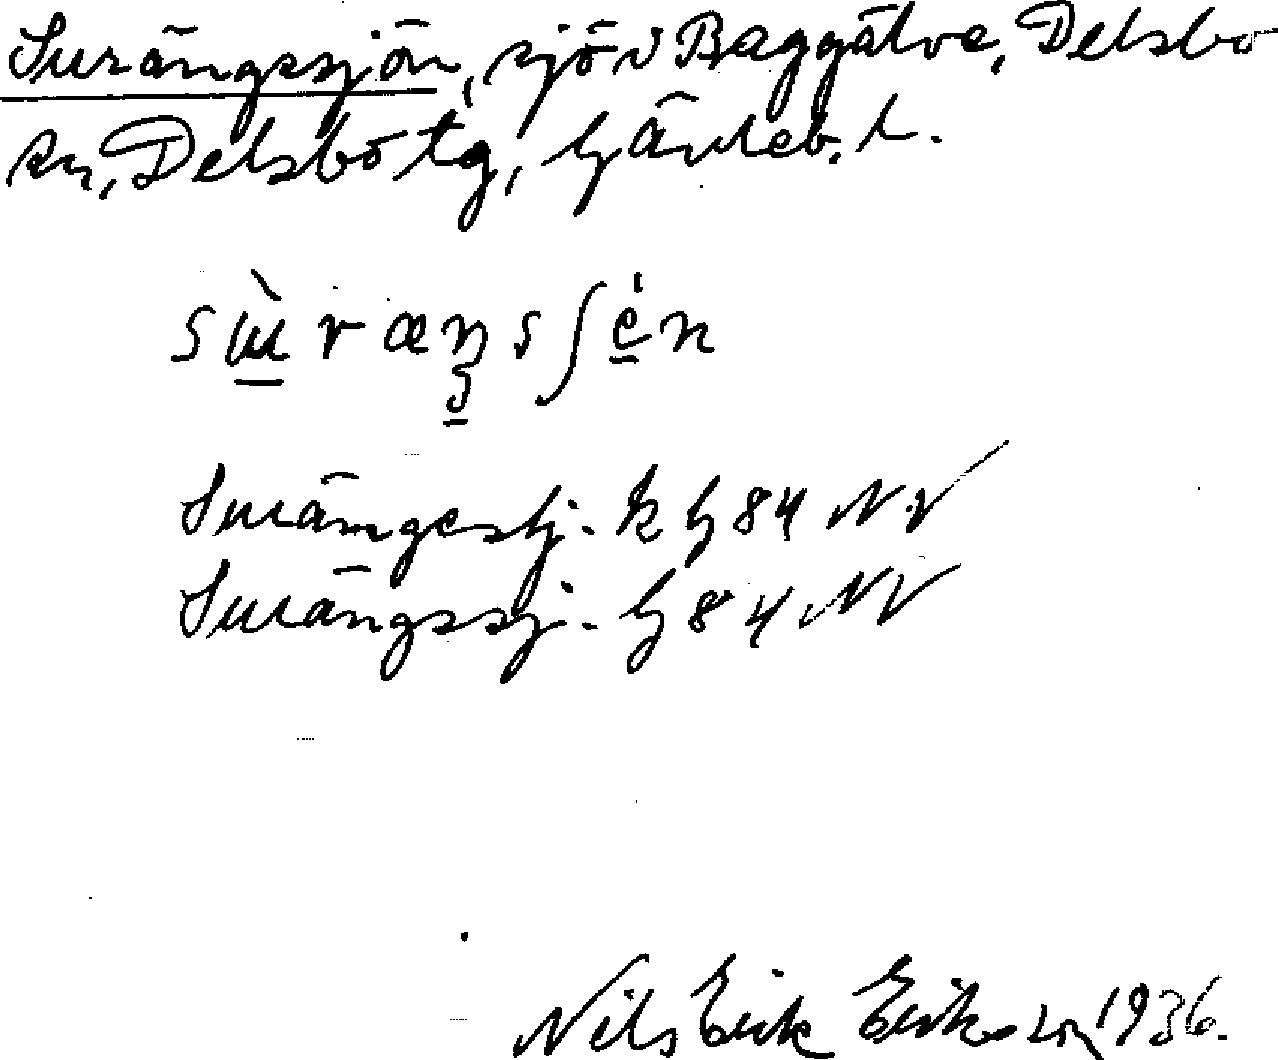 Surängssjön, sjö i Baggälve, Delsbo
sn, Delsbo tg, Gävleb. l.
sɯ̀ræŋsʃén
Surängestj. k G 84 NV
Surängssj. G 84 NV
Nils Erik Eriksson 1936.